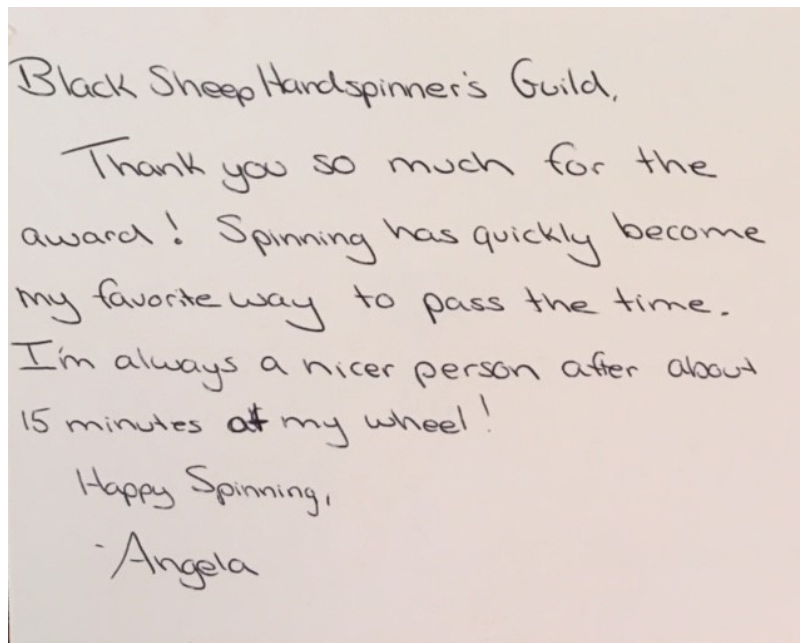 Black Sheep Handspinner's Guild,
Thank you so much for the
award! Spinning has quickly become
my favorite way to pass the time.
I'm always a nicer person after about
15 minutes at my wheel!
Happy Spinning,
-Angela